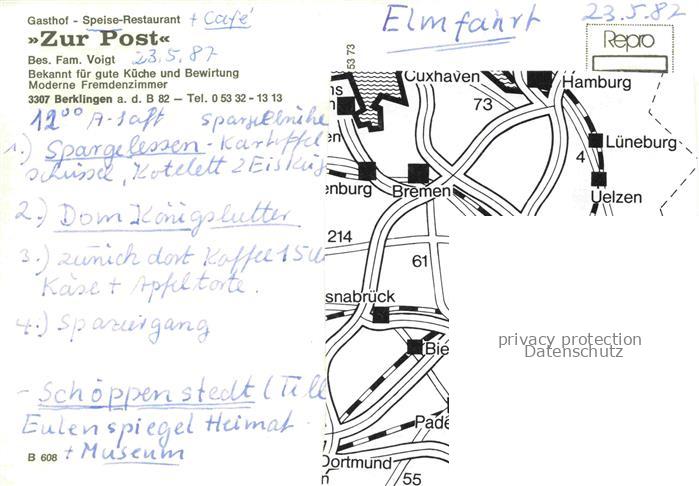 Gasthof - Speise-Restaurant + Café
»Zur Post«
Bes. Fam. Voigt 23.5.87
Bekannt für gute Küche und Bewirtung
Moderne Fremdenzimmer
3307 Berklingen a. d. B 82 – Tel. 0 53 32 - 13 13
12⁰⁰ A-Saft
1.) Spargelessen - Kartoffel
schüssel, Kotelett 2 Eiskug
2.) Dom Königslutter
3.) zurück dort Kaffee 15 U
Käse + Apfeltorte.
4.) Spaziergang
- Schöppenstedt (Till
Eulenspiegel Heimat
+ Museum
B 608
Elmfahrt 23.5.87
Repro
53 73
Cuxhaven
Hamburg
73
Lüneburg
4
Uelzen
enburg
Bremen
214
61
snabrück
Bie
Pade
Dortmund
55
privacy protection
Datenschutz